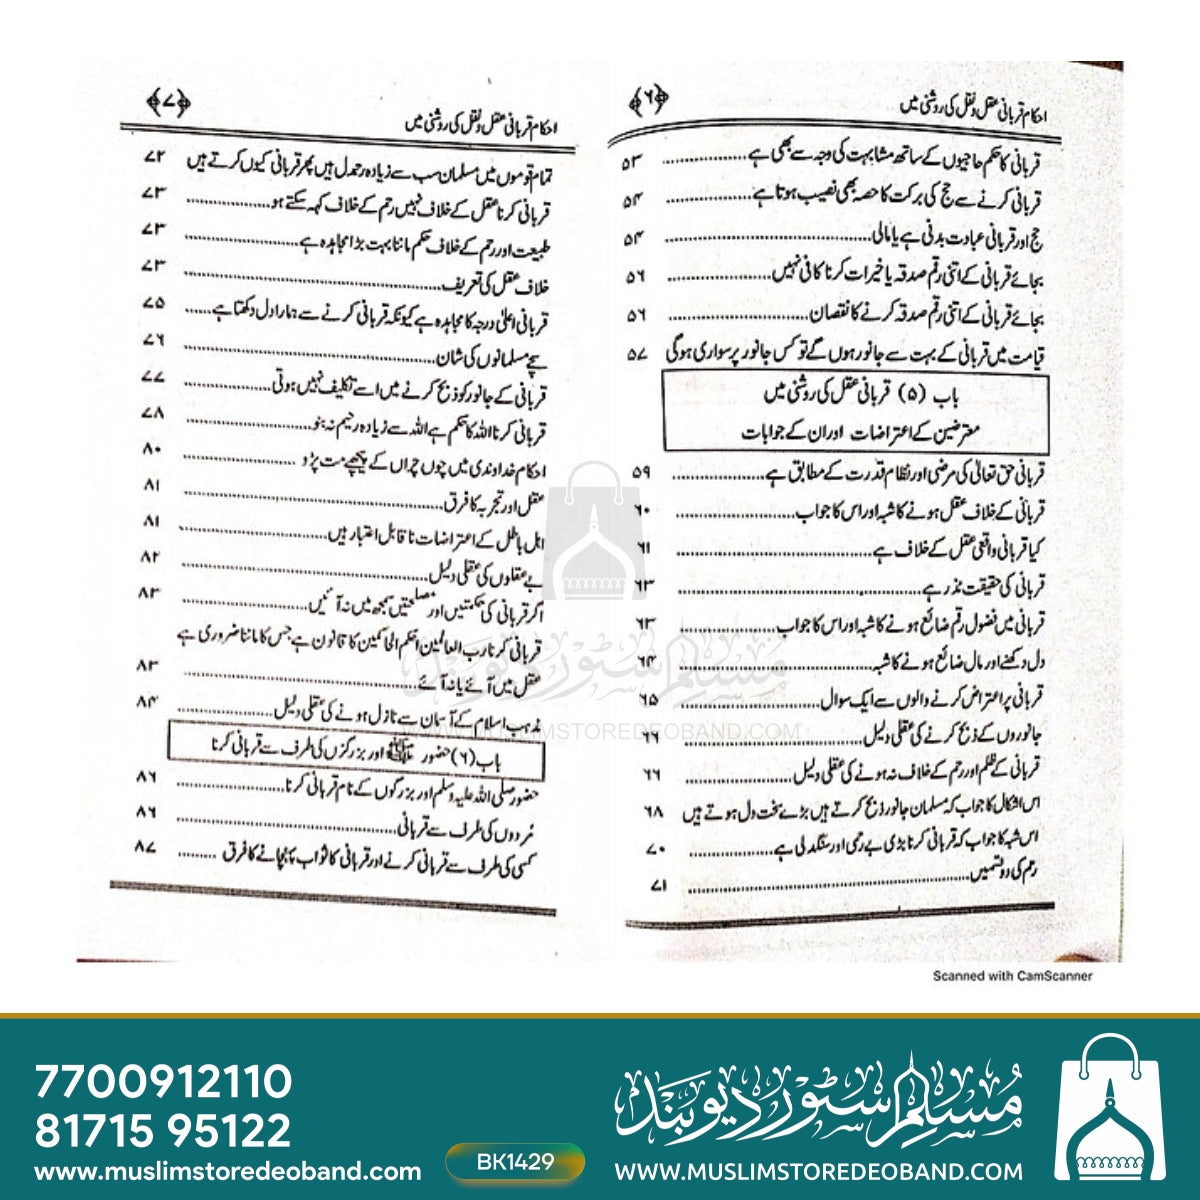 احکام قربانی عقل و نقل کی روشنی میں ﴿۶﴾
قربانی کا حکم حاجیوں کے ساتھ مشابہت کی وجہ سے بھی ہے ۵۳
قربانی کرنے سے حج کی برکت کا حصہ بھی نصیب ہوتا ہے ۵۴
حج اور قربانی عبادت بدنی ہے یا مالی ۵۴
بجائے قربانی کے اتنی رقم صدقہ یا خیرات کرنا کافی نہیں ۵۶
بجائے قربانی کے اتنی رقم صدقہ کرنے کا نقصان ۵۶
قیامت میں قربانی کے بہت سے جانور ہوں گے تو کس جانور پر سواری ہوگی ۵۷
باب (۵) قربانی عقل کی روشنی میں
معترضین کے اعتراضات اور ان کے جوابات
قربانی حق تعالیٰ کی مرضی اور نظام قدرت کے مطابق ہے ۵۹
قربانی کے خلاف عقل ہونے کا شبہ اور اس کا جواب ۶۰
کیا قربانی واقعی عقل کے خلاف ہے ۶۱
قربانی کی حقیقت نذر ہے ۶۳
قربانی میں فضول رقم ضائع ہونے کا شبہ اور اس کا جواب ۶۳
دل دکھنے اور مال ضائع ہونے کا شبہ ۶۴
قربانی پر اعتراض کرنے والوں سے ایک سوال ۶۵
جانوروں کے ذبح کرنے کی عقلی دلیل ۶۶
قربانی کے ظلم اور رحم کے خلاف نہ ہونے کی عقلی دلیل ۶۶
اس اشکال کا جواب کہ مسلمان جانور ذبح کرتے ہیں بڑے سخت دل ہوتے ہیں ۶۸
اس شبہ کا جواب کہ قربانی کرنا بڑی بے رحمی اور سنگدلی ہے ۷۰
رحم کی دو قسمیں ۷۱
احکام قربانی عقل و نقل کی روشنی میں ﴿۷﴾
تمام قوموں میں مسلمان سب سے زیادہ رحمدل ہیں پھر قربانی کیوں کرتے ہیں ۷۲
قربانی کرنا عقل کے خلاف نہیں رحم کے خلاف کہہ سکتے ہو ۷۳
طبیعت اور رحم کے خلاف حکم ماننا بہت بڑا مجاہدہ ہے ۷۳
خلاف عقل کی تعریف ۷۳
قربانی اعلیٰ درجہ کا مجاہدہ ہے کیونکہ قربانی کرنے سے ہمارا دل دکھتا ہے ۷۵
سچے مسلمانوں کی شان ۷۶
قربانی کے جانور کو ذبح کرنے میں اسے تکلیف نہیں ہوتی ۷۷
قربانی کرنا اللہ کا حکم ہے اللہ سے زیادہ رحیم نہ بنو ۷۸
احکام خداوندی میں چوں چراں کے پیچھے مت پڑو ۸۰
عقل اور تجربہ کا فرق ۸۱
اہل باطل کے اعتراضات ناقابل اعتبار ہیں ۸۱
بے عقلوں کی عقلی دلیل ۸۲
اگر قربانی کی حکمتیں اور مصلحتیں سمجھ میں نہ آئیں ۸۳
قربانی کرنا رب العالمین احکم الحاکمین کا قانون ہے جس کا ماننا ضروری ہے
عقل میں آئے یا نہ آئے ۸۳
مذہب اسلام کے آسمان سے نازل ہونے کی عقلی دلیل ۸۴
باب (۶) حضور ﷺ اور بزرگوں کی طرف سے قربانی کرنا
حضور صلی اللہ علیہ وسلم اور بزرگوں کے نام قربانی کرنا ۸۶
مُردوں کی طرف سے قربانی ۸۶
کسی کی طرف سے قربانی کرنے اور قربانی کا ثواب پہنچانے کا فرق ۸۷
مسلم سٹور دیوبند
WWW.MUSLIMSTOREDEOBAND.COM
Scanned with CamScanner
7700912110
81715 95122
www.muslimstoredeoband.com
BK1429
مسلم سٹور دیوبند
WWW.MUSLIMSTOREDEOBAND.COM